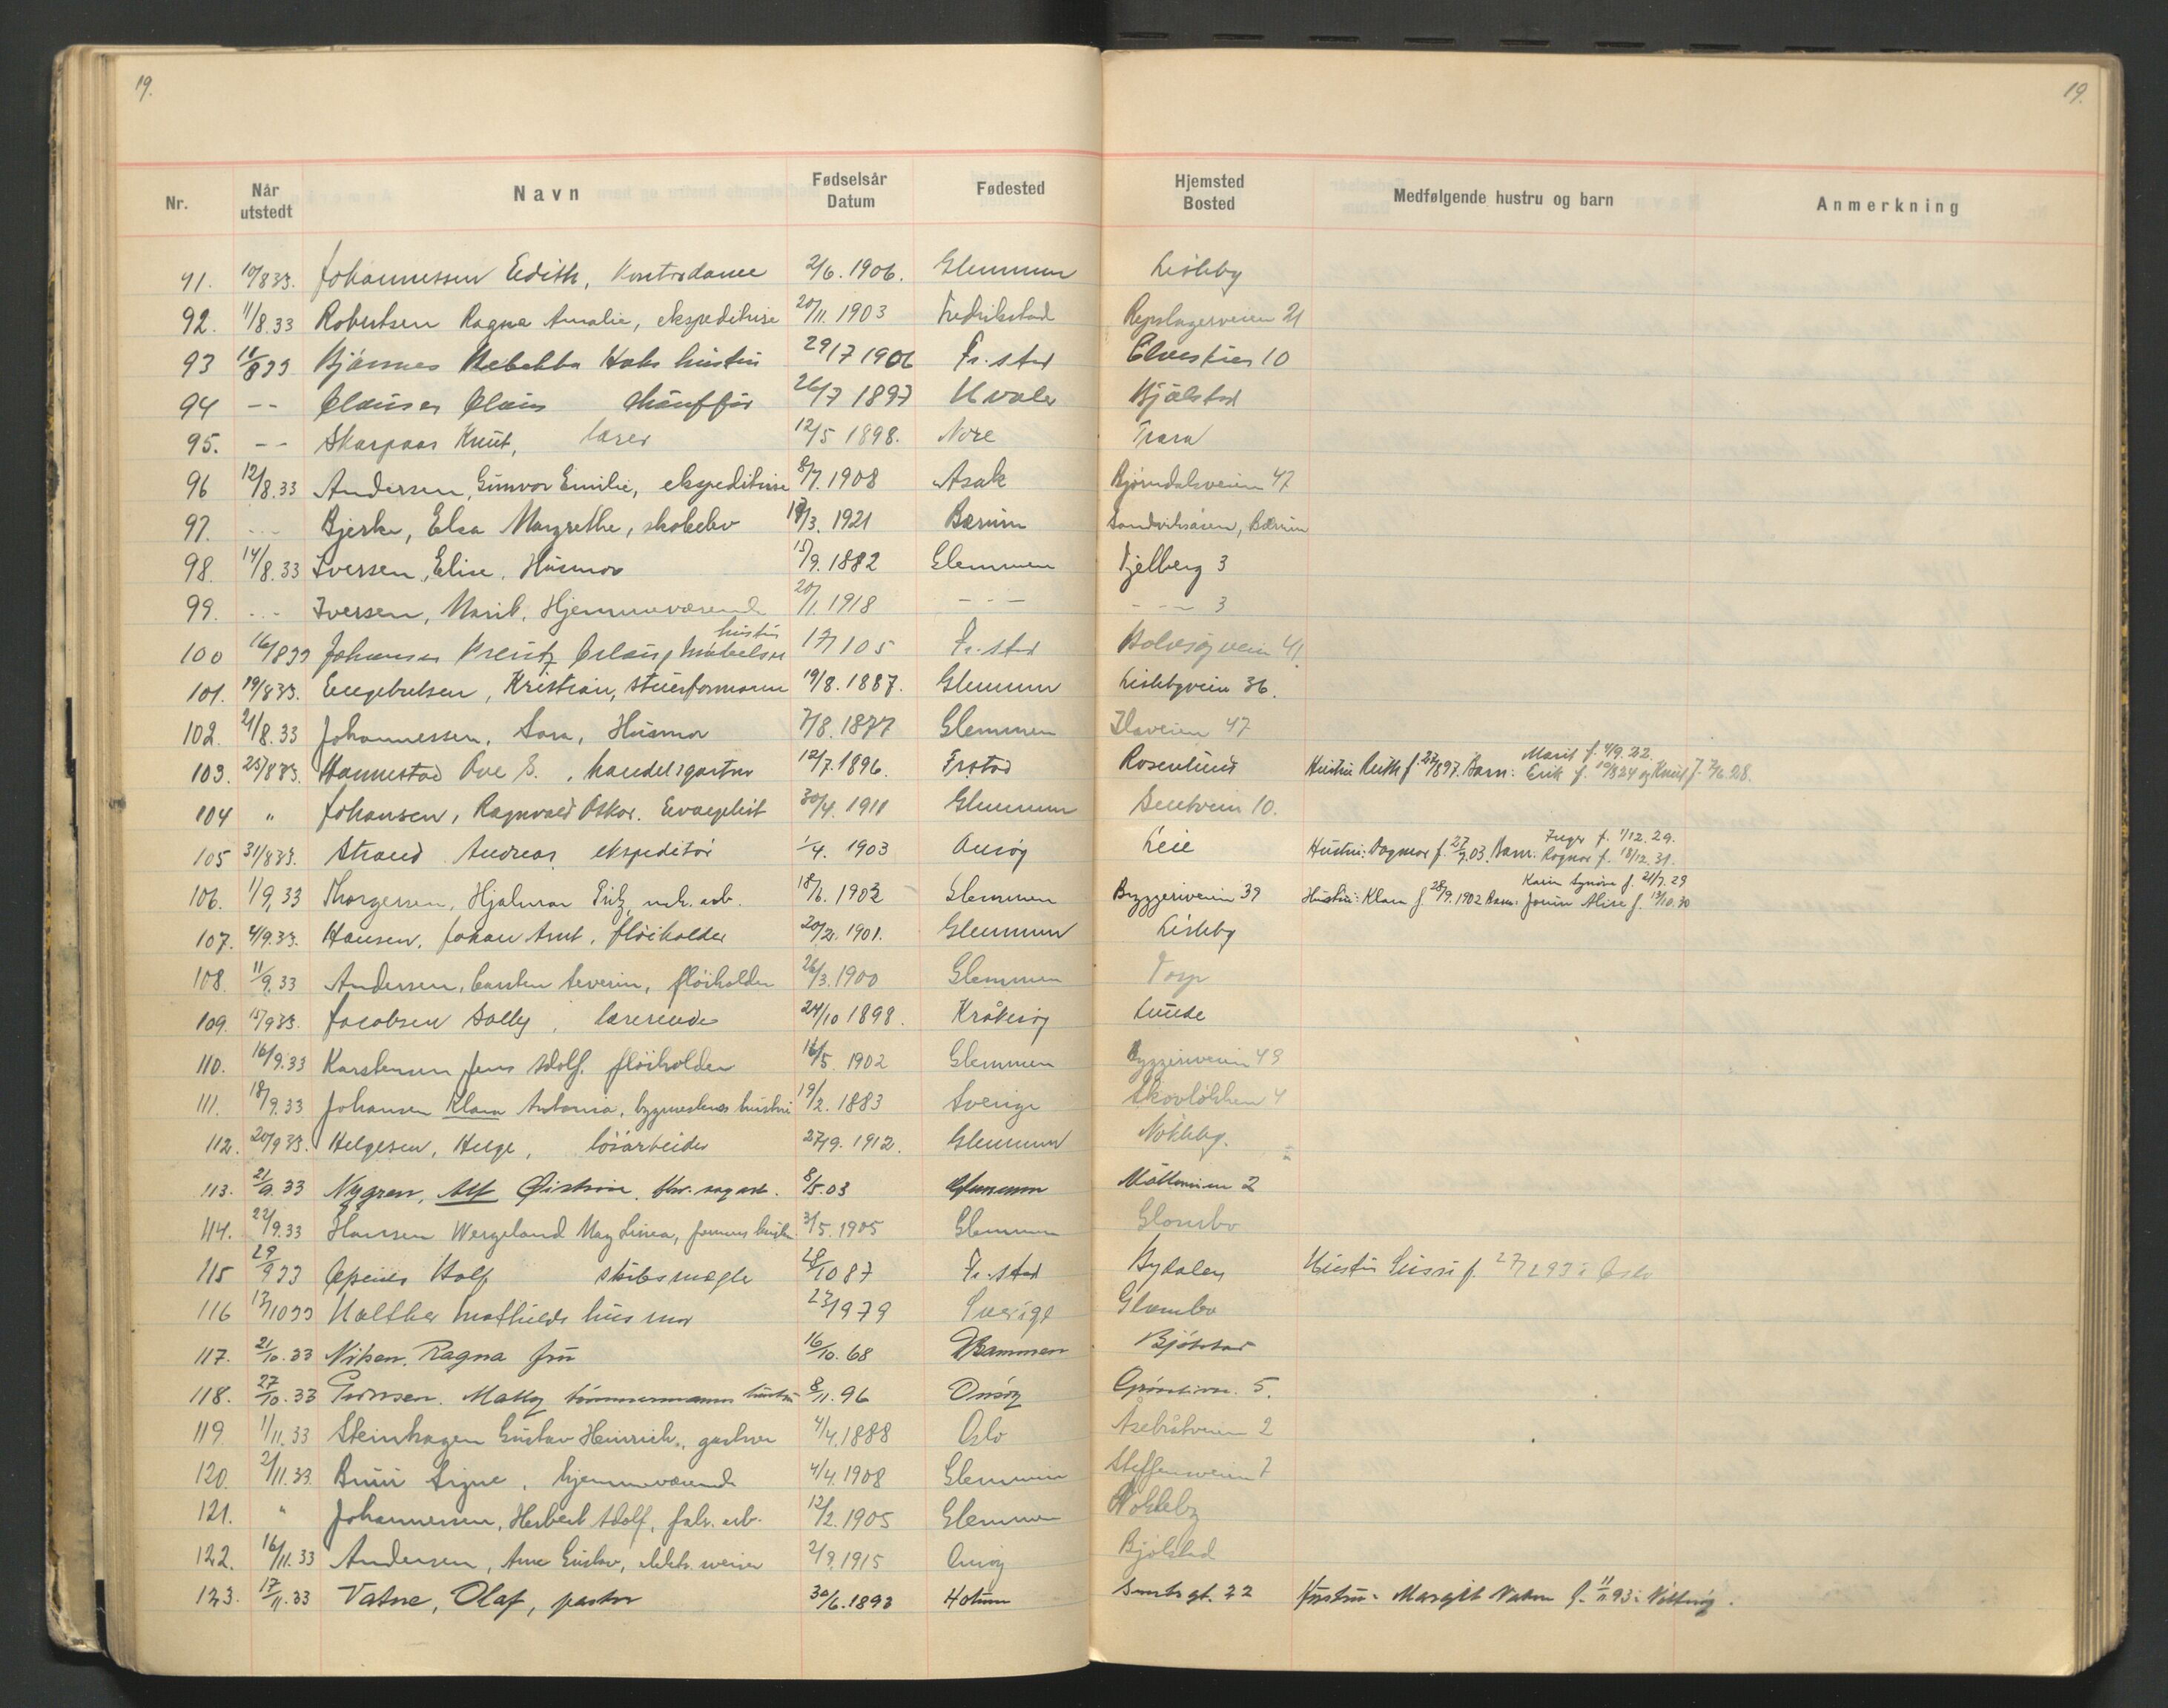 19.
19.
Nr. Når utstedt Navn Fødselsår Datum Fødested Hjemsted Bosted Medfølgende hustru og barn Anmerkning
91. 10/8 33. Johannessen Edith, kontordame 2/6. 1906. Glemmen Lisleby
92. 11/8.33 Robertsen Ragna Amalie, ekspeditrise 20/11. 1903 Fredrikstad Repslagerveien 21
93 11/8 33 Bjørnes Rebekka hustru 29/7 1906 Fr.stad 10
94 -- Clausen Claus chauffør 26/7 1897 Hvaler Kjølstad
95. -- Skarpaas Knut, lærer 12/5 1898. Nore Trara
96 12/8.33 Andersen, Gunvor Emilie, ekspeditrise 8/7. 1908 Asak Bjørndalsveien 47
97. -- Bjerke, Elsa Margrethe, skoleelev /3. 1921 Bærum Sandviksåsen, Bærum
98. 14/8.33 Iversen, Elise, Husmor 15/9. 1882 Glemmen Fjelberg 3
99. -- Iversen, Marit, Hjemmeværende 20/1. 1918 --- --- 3
100 16/8 33 Johansen hustru 17/1 05 Fr.stad 41
101. 19/8 33. Engebretsen, Kristian, stuerformann 19/8. 1887. Glemmen Lislebyveien 36.
102. 21/8.33 Johannessen, Sara, Husmor 7/8. 1877 Glemmen Ilaveien 47
103. 25/8 33. Hannestad Ove S., handelsgartner 12/7. 1896. Frstad Rosenlund Hustru Ruth f. 22/8 97. Barn: Marit f. 4/9. 22. Erik f. 10/8 24 og Knut f. 7/6. 28.
104 " Johansen, Ragnvald Oskar. Evangelist 30/4. 1911 Glemmen 10.
105 31/8 33. Strand Andreas ekspeditør 1/4. 1903 Onsøy Leie Hustru: Dagmar f. 27/9. 03. Barn: Inger f. 1/12. 29. Ragnar f. 18/12. 31.
106. 1/9.33 Thorgersen, Hjalmar Fritz, mek. arb. 18/6. 1902 Glemmen Bryggeriveien 39 Hustru: Klara f. 28/9. 1902 Barn: Karin Synøve f. 21/7. 29 Alise f. 13/10. 30
107. 4/9.33. Hansen, Johan Arnt, fløiholder 20/2. 1901. Glemmen Lisleby
108. 11/9.33 Andersen, Carsten Severin, fløiholder 26/3. 1900 Glemmen Torp
109. 15/9 33. Jacobsen Solly, lærerinde 24/10 1898. Kråkerøy Lunde
110. 16/9.33 Karstensen Jens Adolf. fløiholder 16/5. 1902 Glemmen Bryggeriveien 43
111. 18/9.33 Johansen Klara Antonia, bygmesters hustru 19/2. 1883 Sverige Skovløkken 4
112. 20/9 33. Helgesen, Helge, løsarbeider 27/9. 1912. Glemmen Nøkleby.
113. 21/9.33 Nygren, Alf Øistein, 8/5.03 Glemmen 2
114. 22/9.33 Hansen Wergeland May Linea, hustru 3/5. 1905 Glemmen Glombo
115 29/9 33 Rolf skibsmegler 28/10 87 Fr.stad Bydalen Hustru Sussi f. 27/2 93 i Oslo
116 17/10 33 Walther Mathilde husmor 23/1 979 Sverige Glombo
117. 21/10.33 Nilsen, Ragna fru 16/10. 68 Drammen Bjølstad
118. 27/10.33 Matty tømmermanns hustru 8/11. 96 Onsøy 5.
119 1/11.33 Steinhagen Gustav Heinrich, gartner 4/4. 1888 Oslo Åsebråtveien 2
120. 2/11.33. Buer Signe, hjemmeværende 4/4. 1908 Glemmen Steffensveien 7
121. " Johannesen, Herbert Adolf, fabr. arb. 12/2. 1905 Glemmen Nøkleby
122. 16/11.33 Andersen, Arne Gustav, elektr. sveiser 2/9. 1915 Onsøy Bjølstad
123. 17/11.33 Vatne, Olaf, pastor 30/6. 1893 Holum gt. 22 Hustru: Margit Vatne f. 11/11 93 i Nøtterøy.